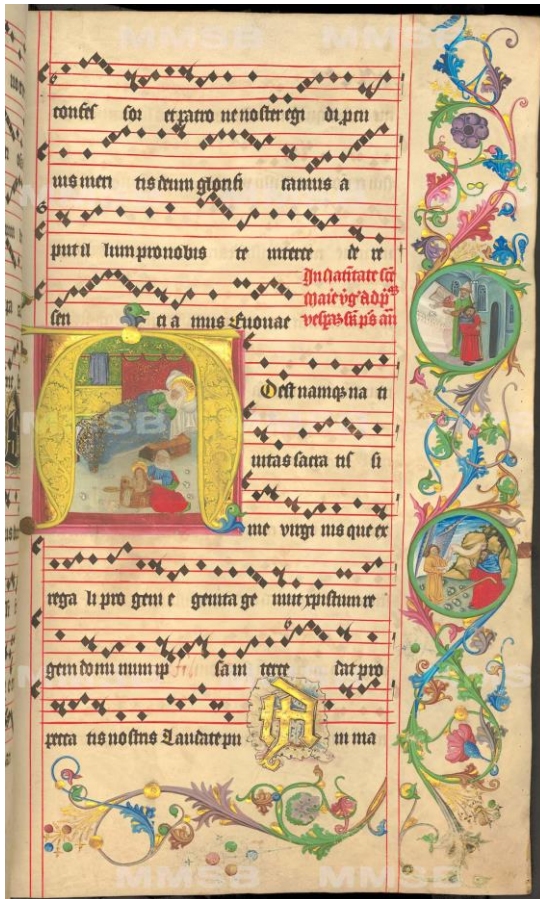 MMSB MMSB
confes sor et patro ne noster egi di pcu
ius meri tis deum glorifi camus a
put il lum pro nobis te interce de re
sen ci a mus Euouae
In natiuitate scē
marie vgīs ad pͥˢ
vesꝑas
A
dest namqȝ na ti
uitas sacra tis si
me virgi nis que ex
rega li pro geni e genita ge nuit xpistum re
gem domi num ip sa in terce dat pro
pecca tis nostris Laudate pu A ni ma
MMSB MMSB